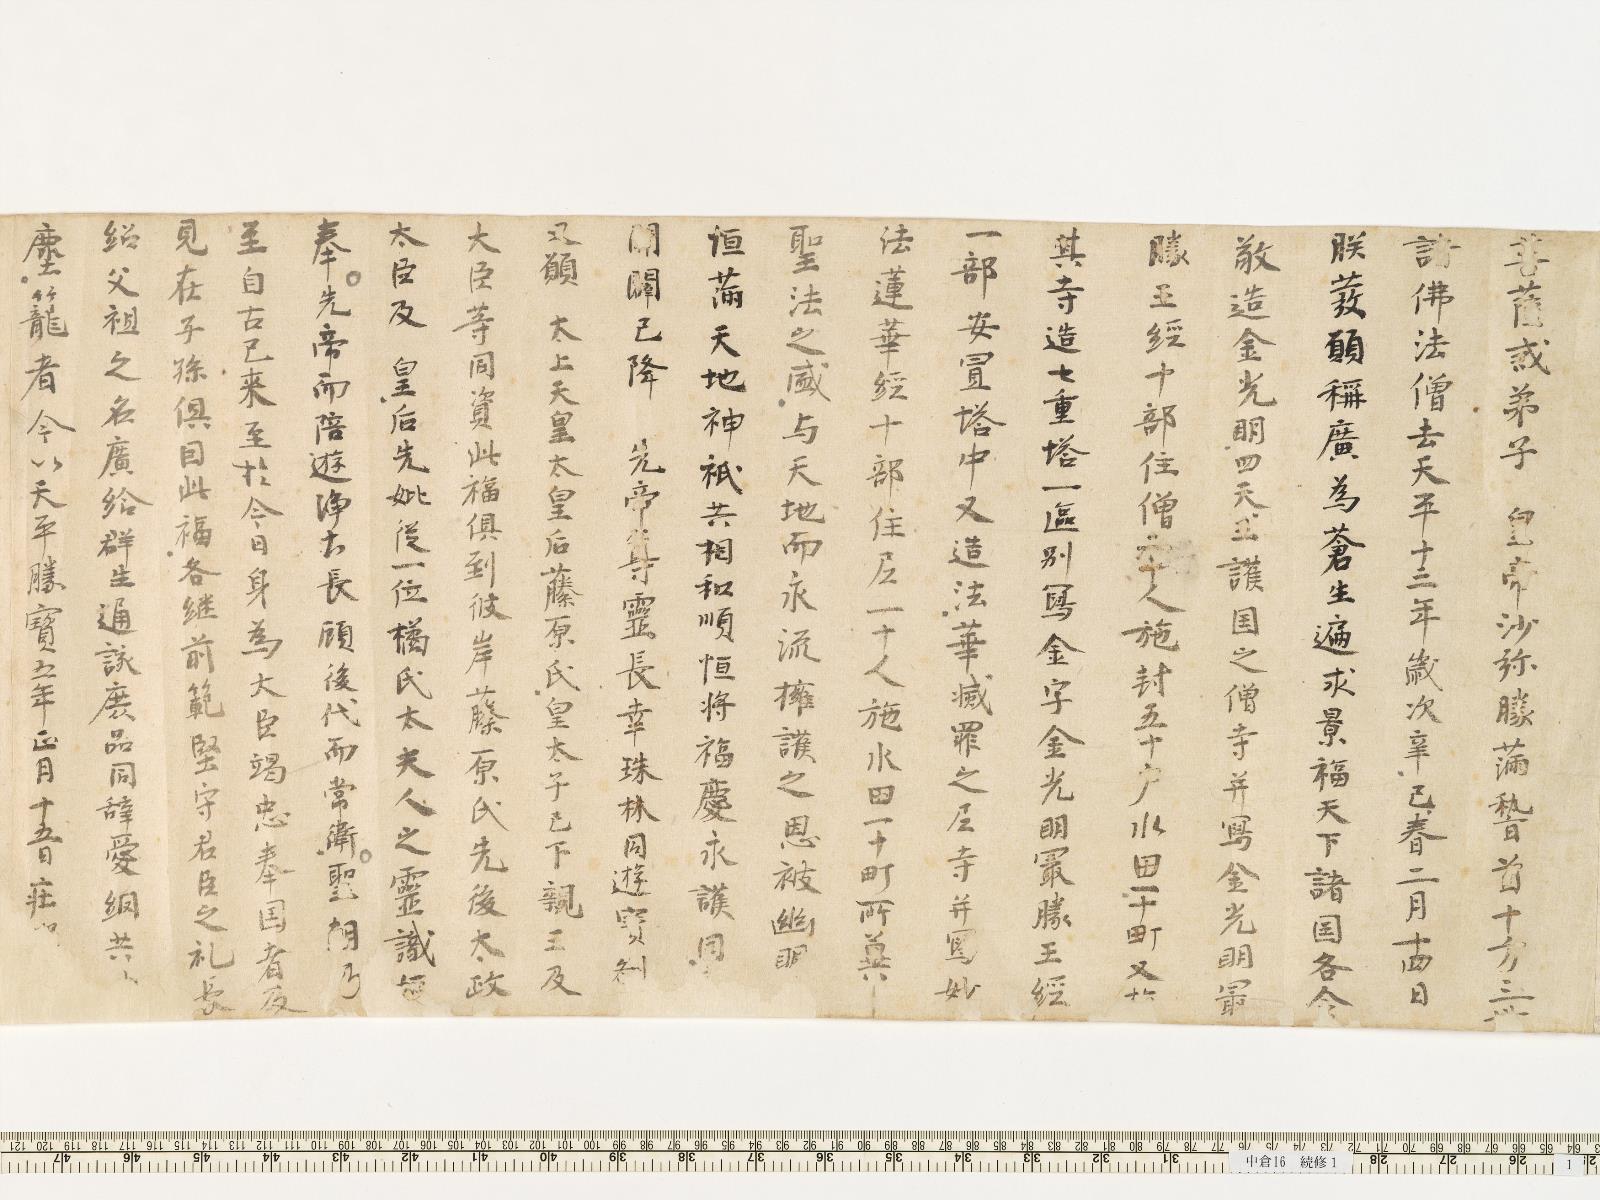 菩薩戒弟子 皇帝沙弥勝滿稽首十方三世
諸佛法僧去天平十三年歳次辛巳春二月十四日
朕發願稱廣為蒼生遍求景福天下諸国各令
敬造金光明四天王護国之僧寺并寫金光明最
勝王經十部住僧廿人施封五十戸水田一十町又於
其寺造七重塔一區別寫金字金光明最勝王經
一部安置塔中又造法華滅罪之尼寺并寫妙
法蓮華經十部住尼一十人施水田一十町所冀
聖法之盛与天地而永流擁護之恩被幽明
恒滿天地神祇共相和順恒將福慶永護国
開闢已降 先帝尊靈長幸珠林同遊寶刹
又願 太上天皇太皇后藤原氏皇太子已下親王及
大臣等同資此福俱到彼岸藤原氏先後太政
太臣及 皇后先妣從一位橘氏太夫人之靈識恒
奉先帝而陪遊浄土長顧後代而常衛聖朝乃
至自古已來至於今日身為大臣竭忠奉国者及
見在子孫俱因此福各継前範堅守君臣之礼長
紹父祖之名廣給群生通該庶品同辞愛網共
塵籠者今以天平勝寶五年正月十五日莊
中倉16 続修1
1